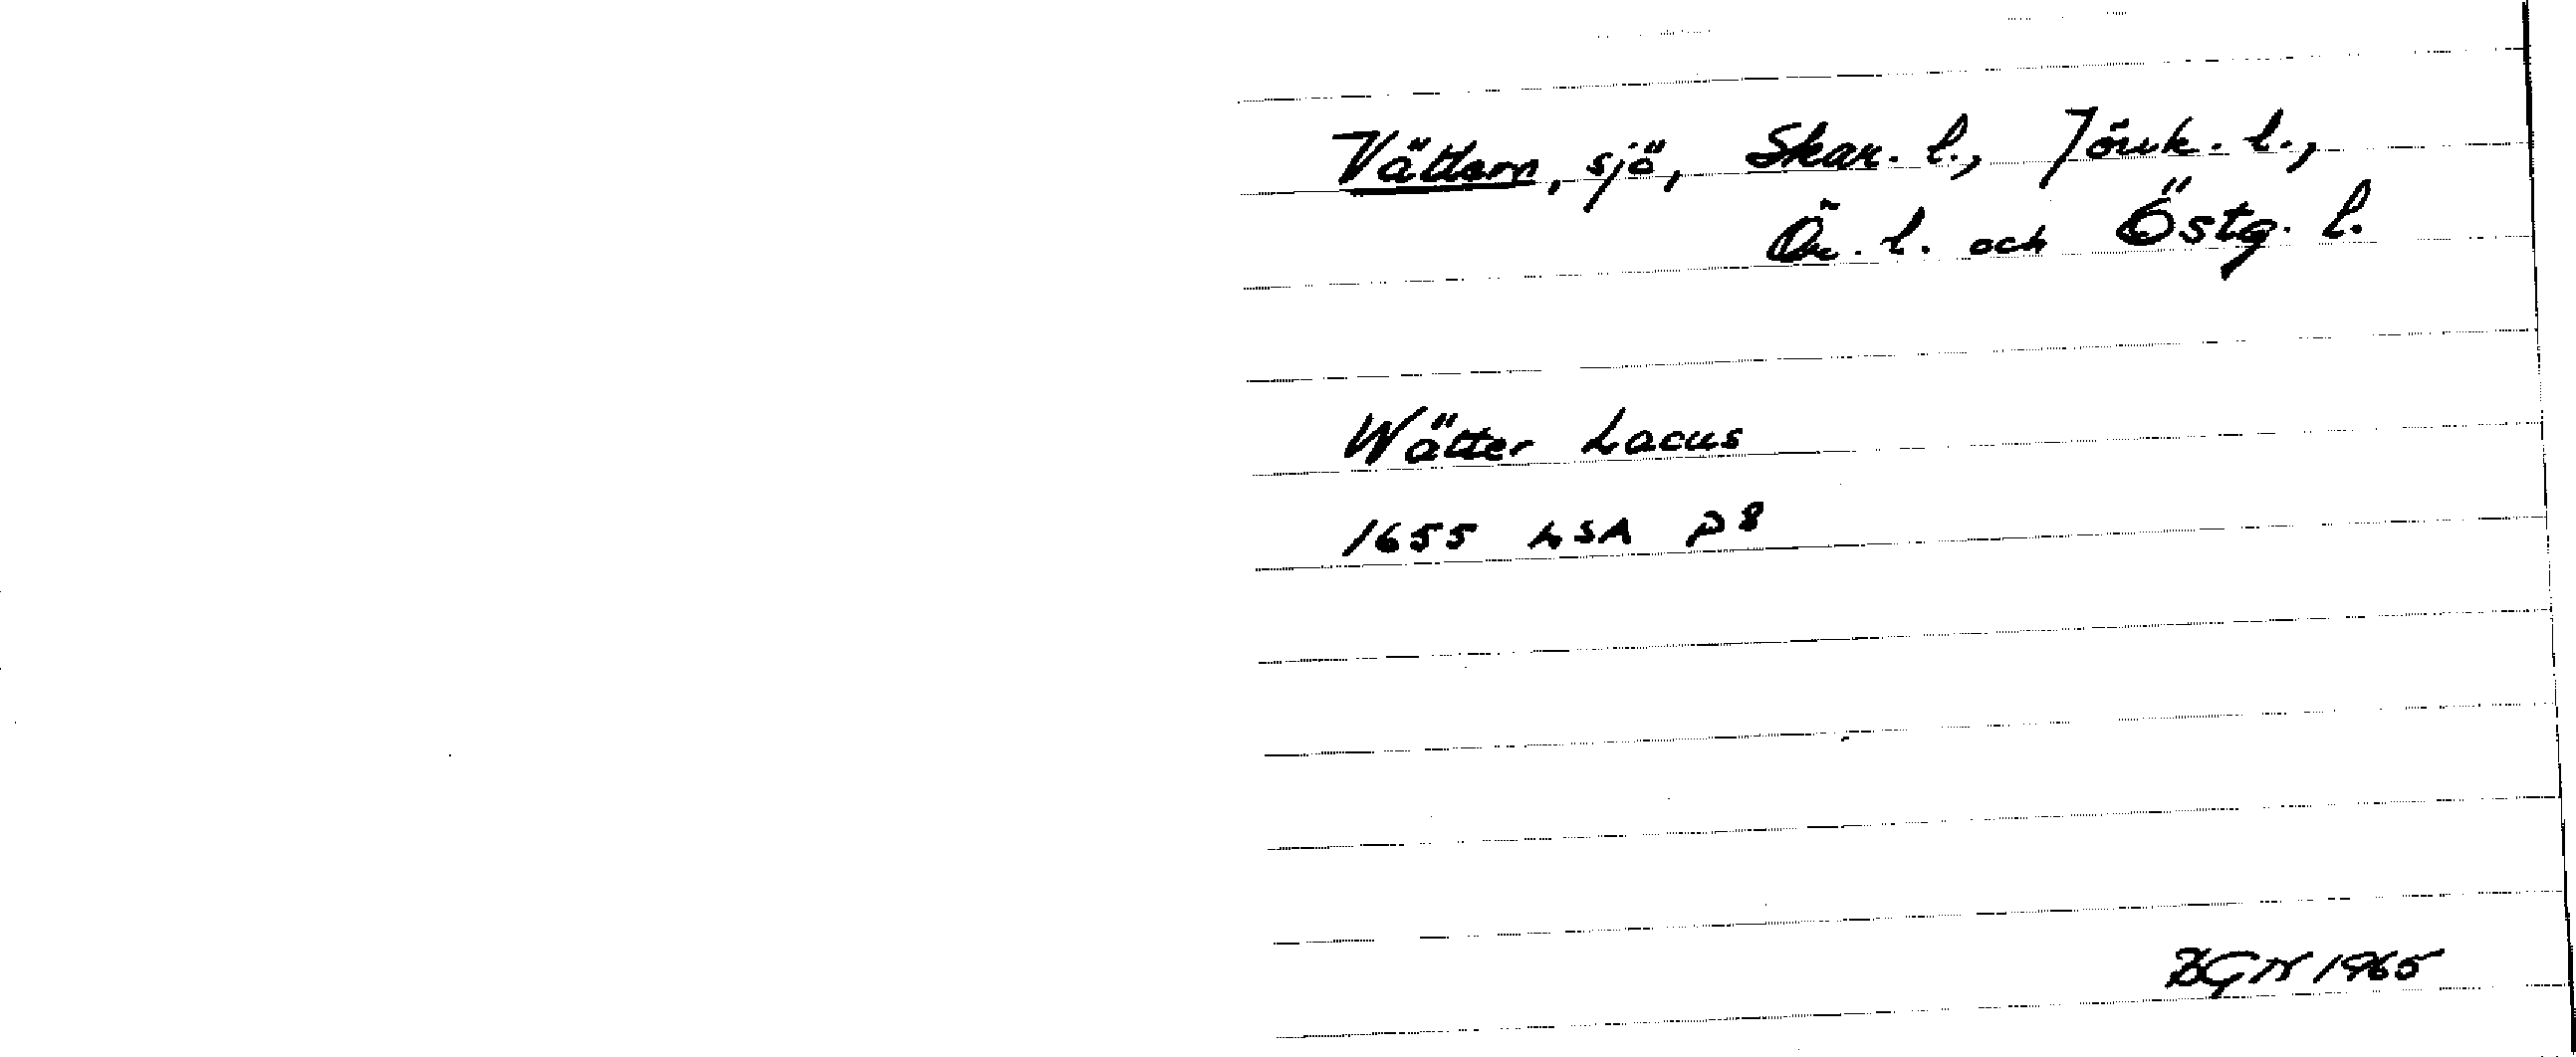 Vättern, sjö, Skar. l., Jönk. l.,
Ör. l. och Östg. l.
Wätter Lacus
1655 LSA P8
BGN 1965